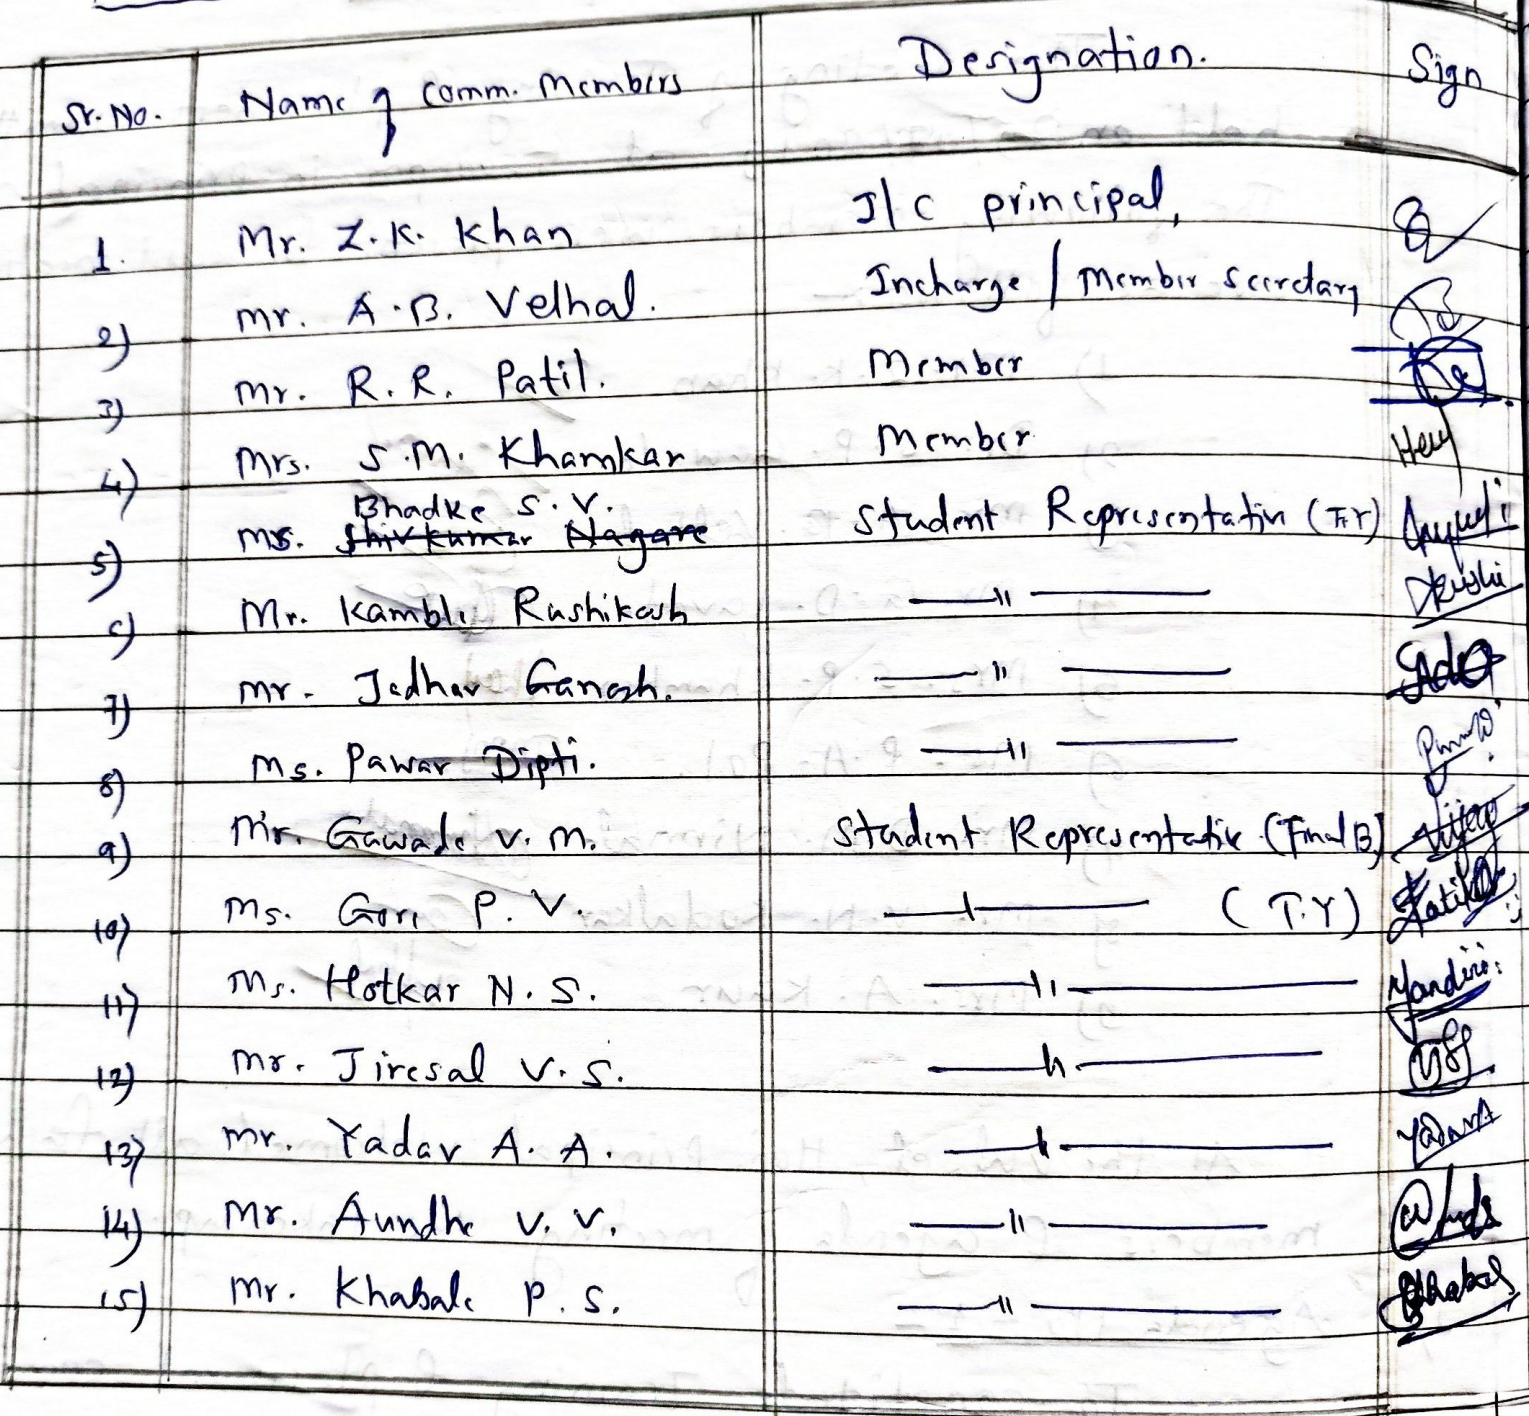 Sr. No. Name of Comm. Members Designation. Sign
1. Mr. Z.K. Khan I/C principal,
2) Mr. A.B. Velhal. Incharge / Member Secretary
3) Mr. R.R. Patil. Member
4) Mrs. S.M. Khamkar Member
Bhadke S.V.
5) Ms. Shivkumar Nagare Student Representativ
6) Mr. Kamble Rushikesh —"—
7) Mr. Jadhav Ganesh. —"—
8) Ms. Pawar Dipti. —"—
9) Mr. Gawade V.M. Student Representativ (Final B)
10) Ms. Gori P.V. —"— (T.Y)
11) Ms. Hotkar N.S. —"—
12) Mr. Jiresal V.S. —"—
13) Mr. Yadav A.A. —"— YadavA
14) Mr. Aundhe V.V. —"—
15) Mr. Khabale P.S. —"—